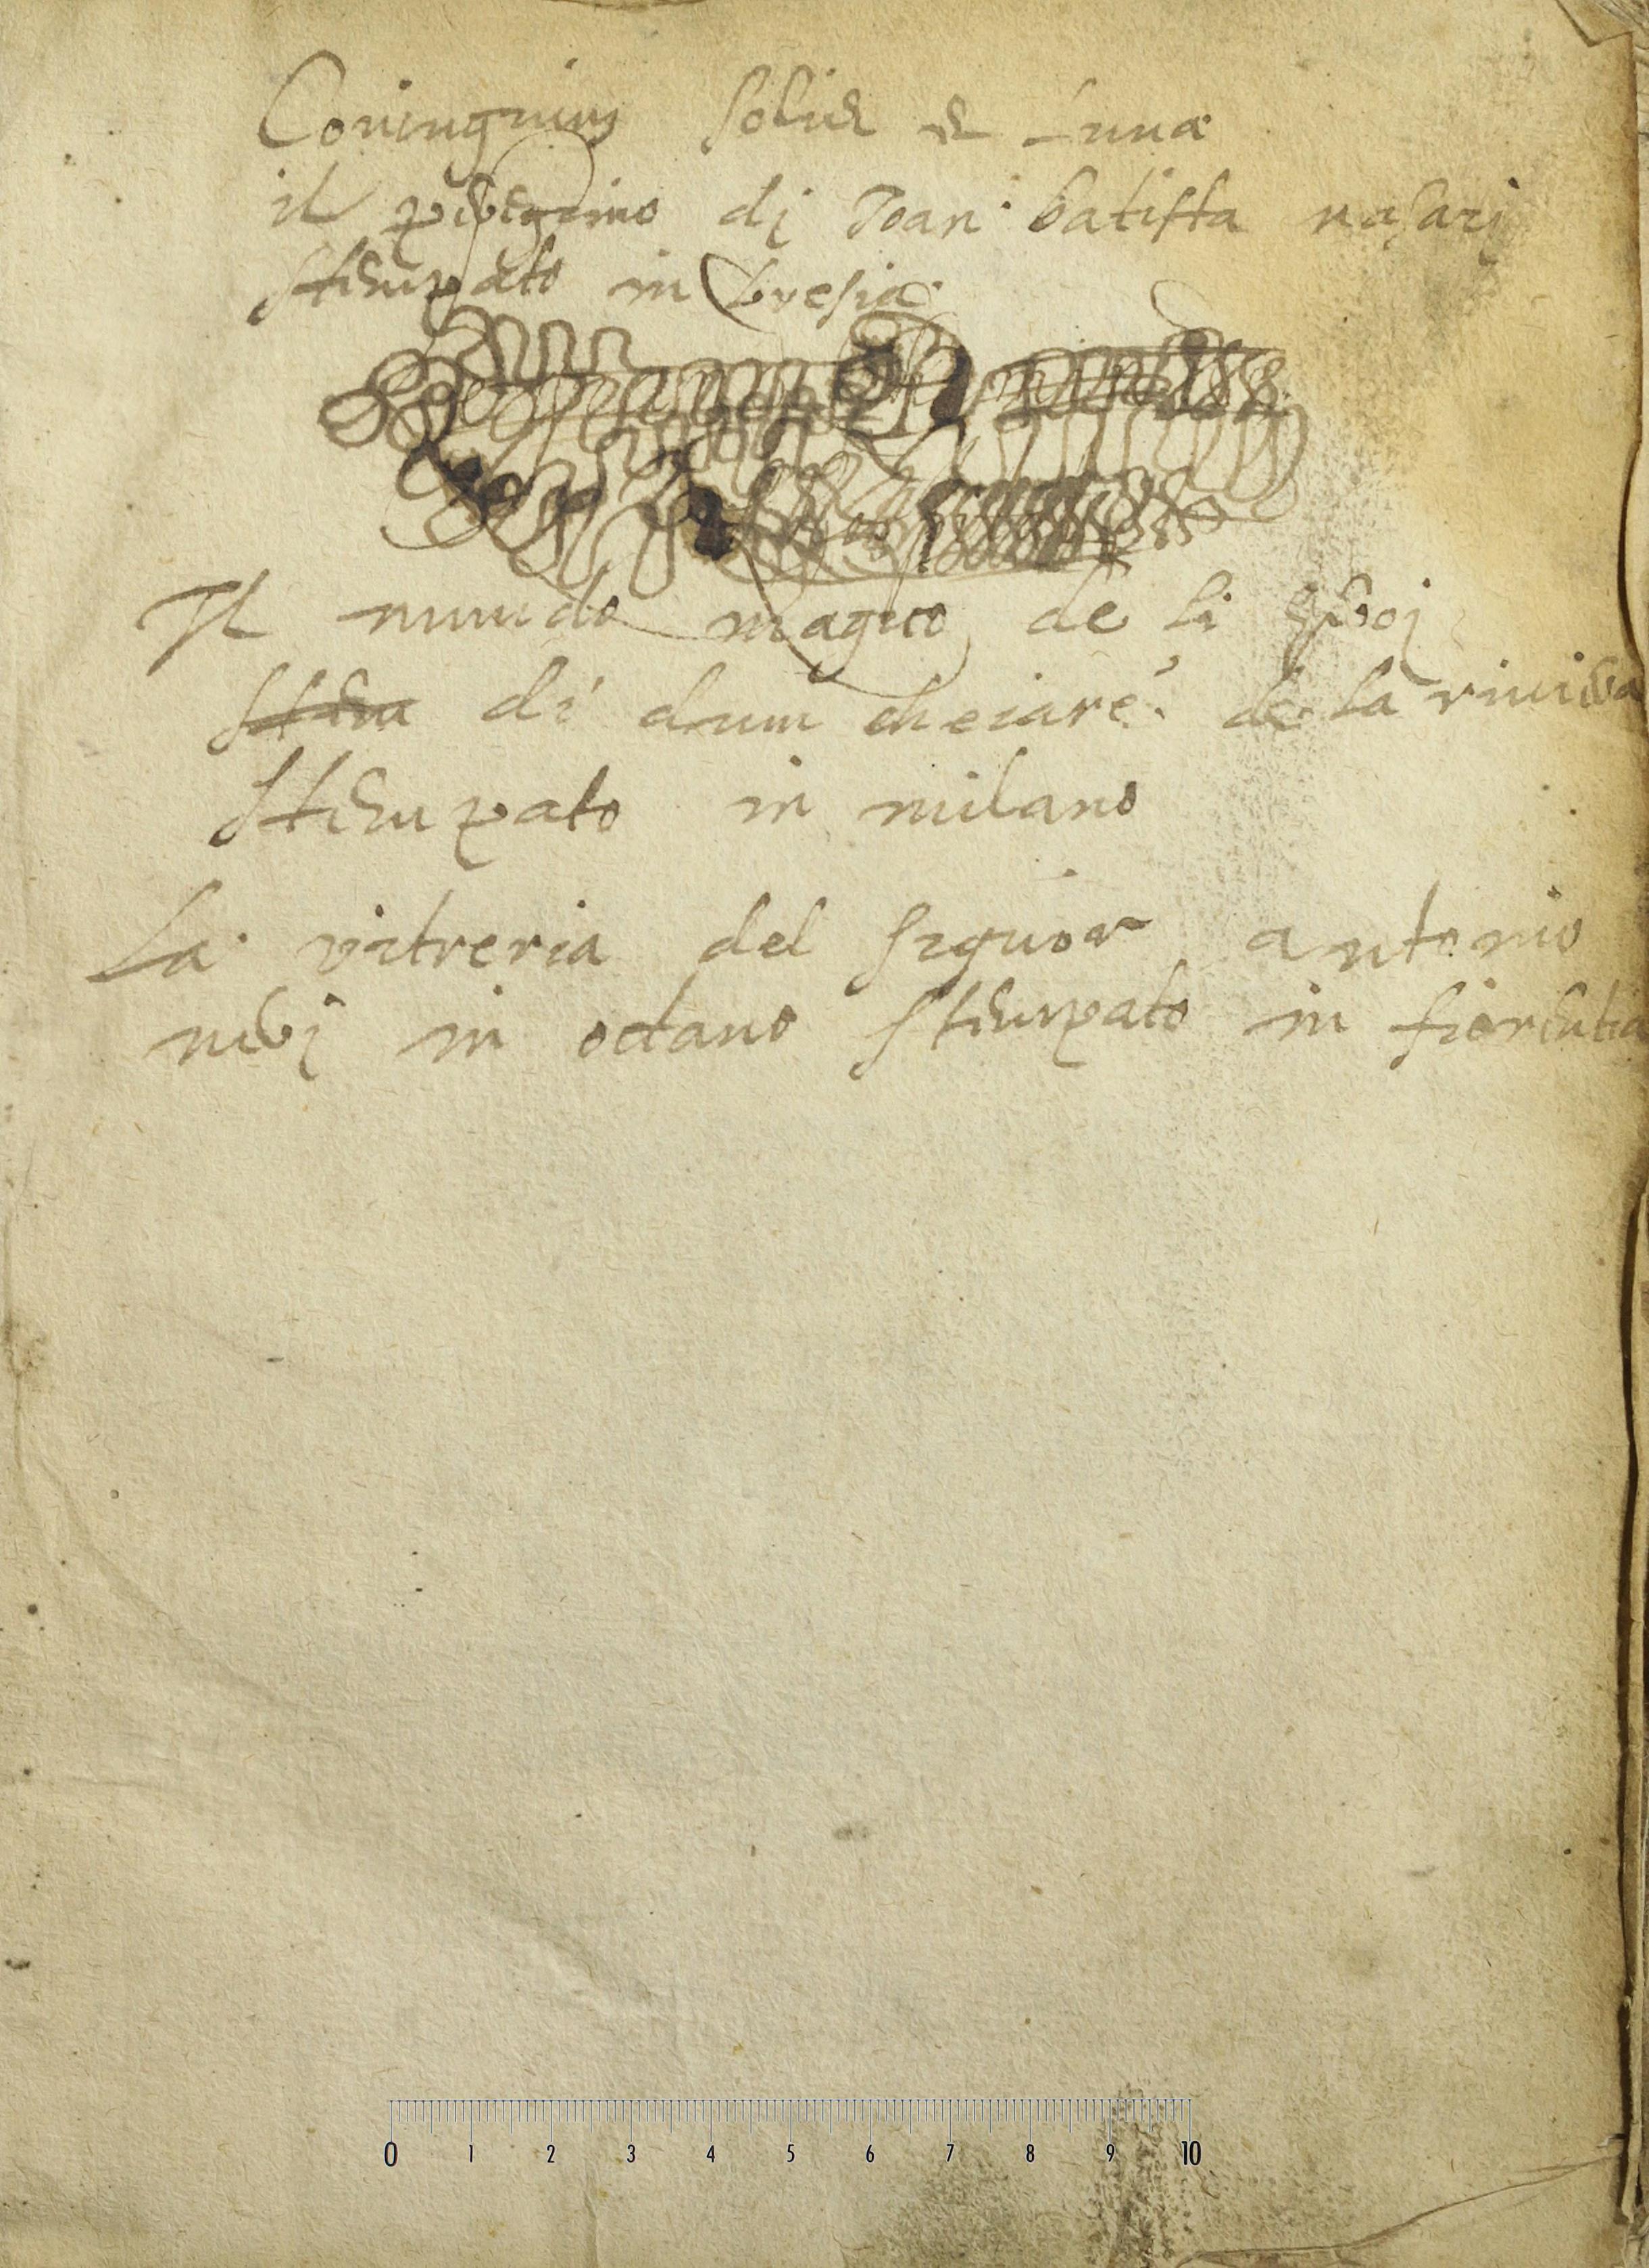 Coniungnius Solis et Luna
il peregrino di Joan batista nasarj
stempato in bresia
Il mundo magico de li eroj
stem di dum cheiare de la riviera
stempato in milano
La vitreria del signior antonio
nerj in octavo stempato in fiorentia
0 1 2 3 4 5 6 7 8 9 10